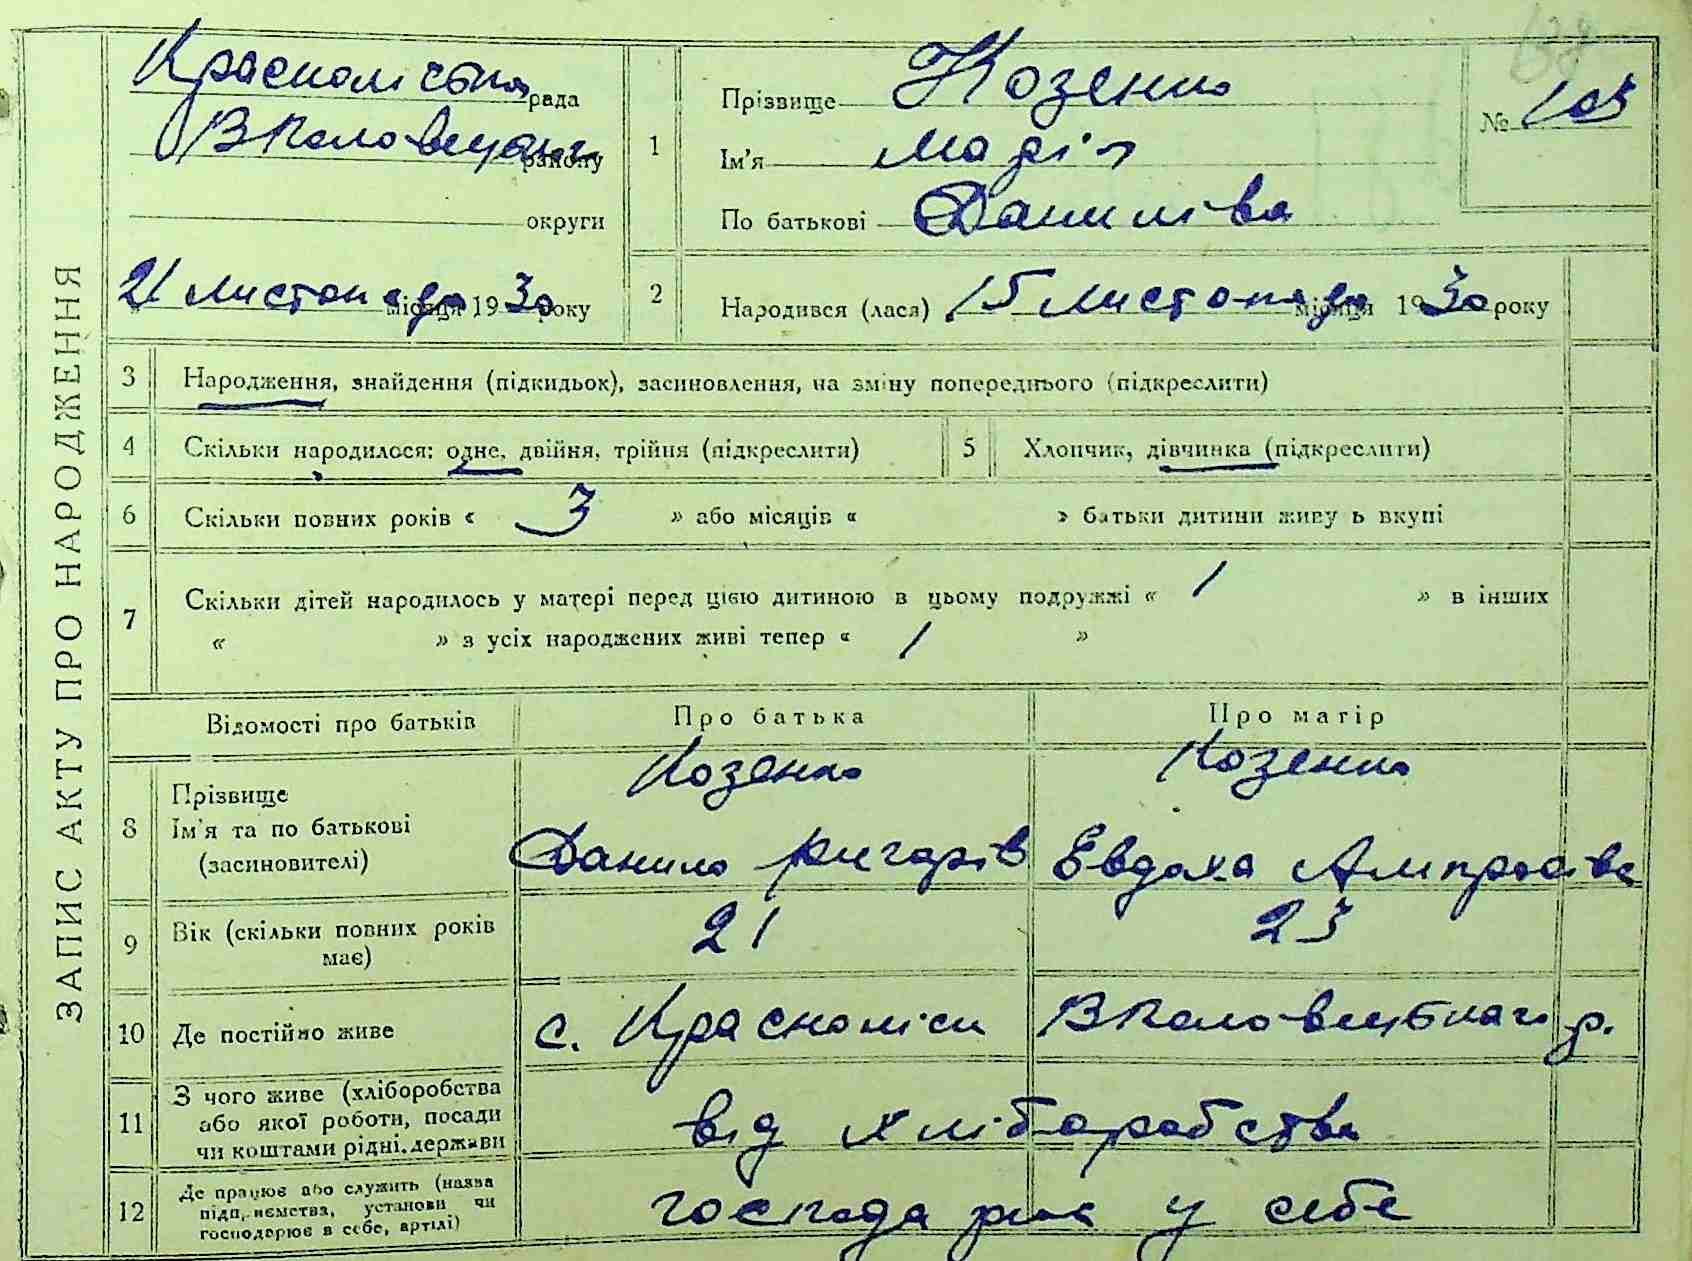 ЗАПИС АКТУ ПРО НАРОДЖЕННЯ
рада
району
округи
21 листопада місяця 1930 року
1
Прізвище Козенко
Ім'я Марія
По батькові Данилівна
№ 105
138
2
Народився (лася) 15 листопада місяця 1930 року
3 Народження, знайдення (підкидьок), засиновлення, на зміну попереднього (підкреслити)
4 Скільки народилося: одне, двійня, трійня (підкреслити)
5 Хлопчик, дівчинка (підкреслити)
6 Скільки повних років « 3 » або місяців « » батьки дитини живуть вкупі
7 Скільки дітей народилось у матері перед цією дитиною в цьому подружжі « 1 » в інших
« » з усіх народжених живі тепер « 1 »
Відомості про батьків
Про батька
Про матір
8
Прізвище
Ім'я та по батькові
(засиновителі)
Козенко
Данило
Козенко
Евдоха
9
Вік (скільки повних років
має)
21
23
10 Де постійно живе
с. Красноліси
р.
11
З чого живе (хліборобства
або якої роботи, посади
чи коштами рідні, держави
від хліборобства
12
Де працює або служить (назва
підприємства, установи чи
господорює в себе, артілі)
господарює у себе